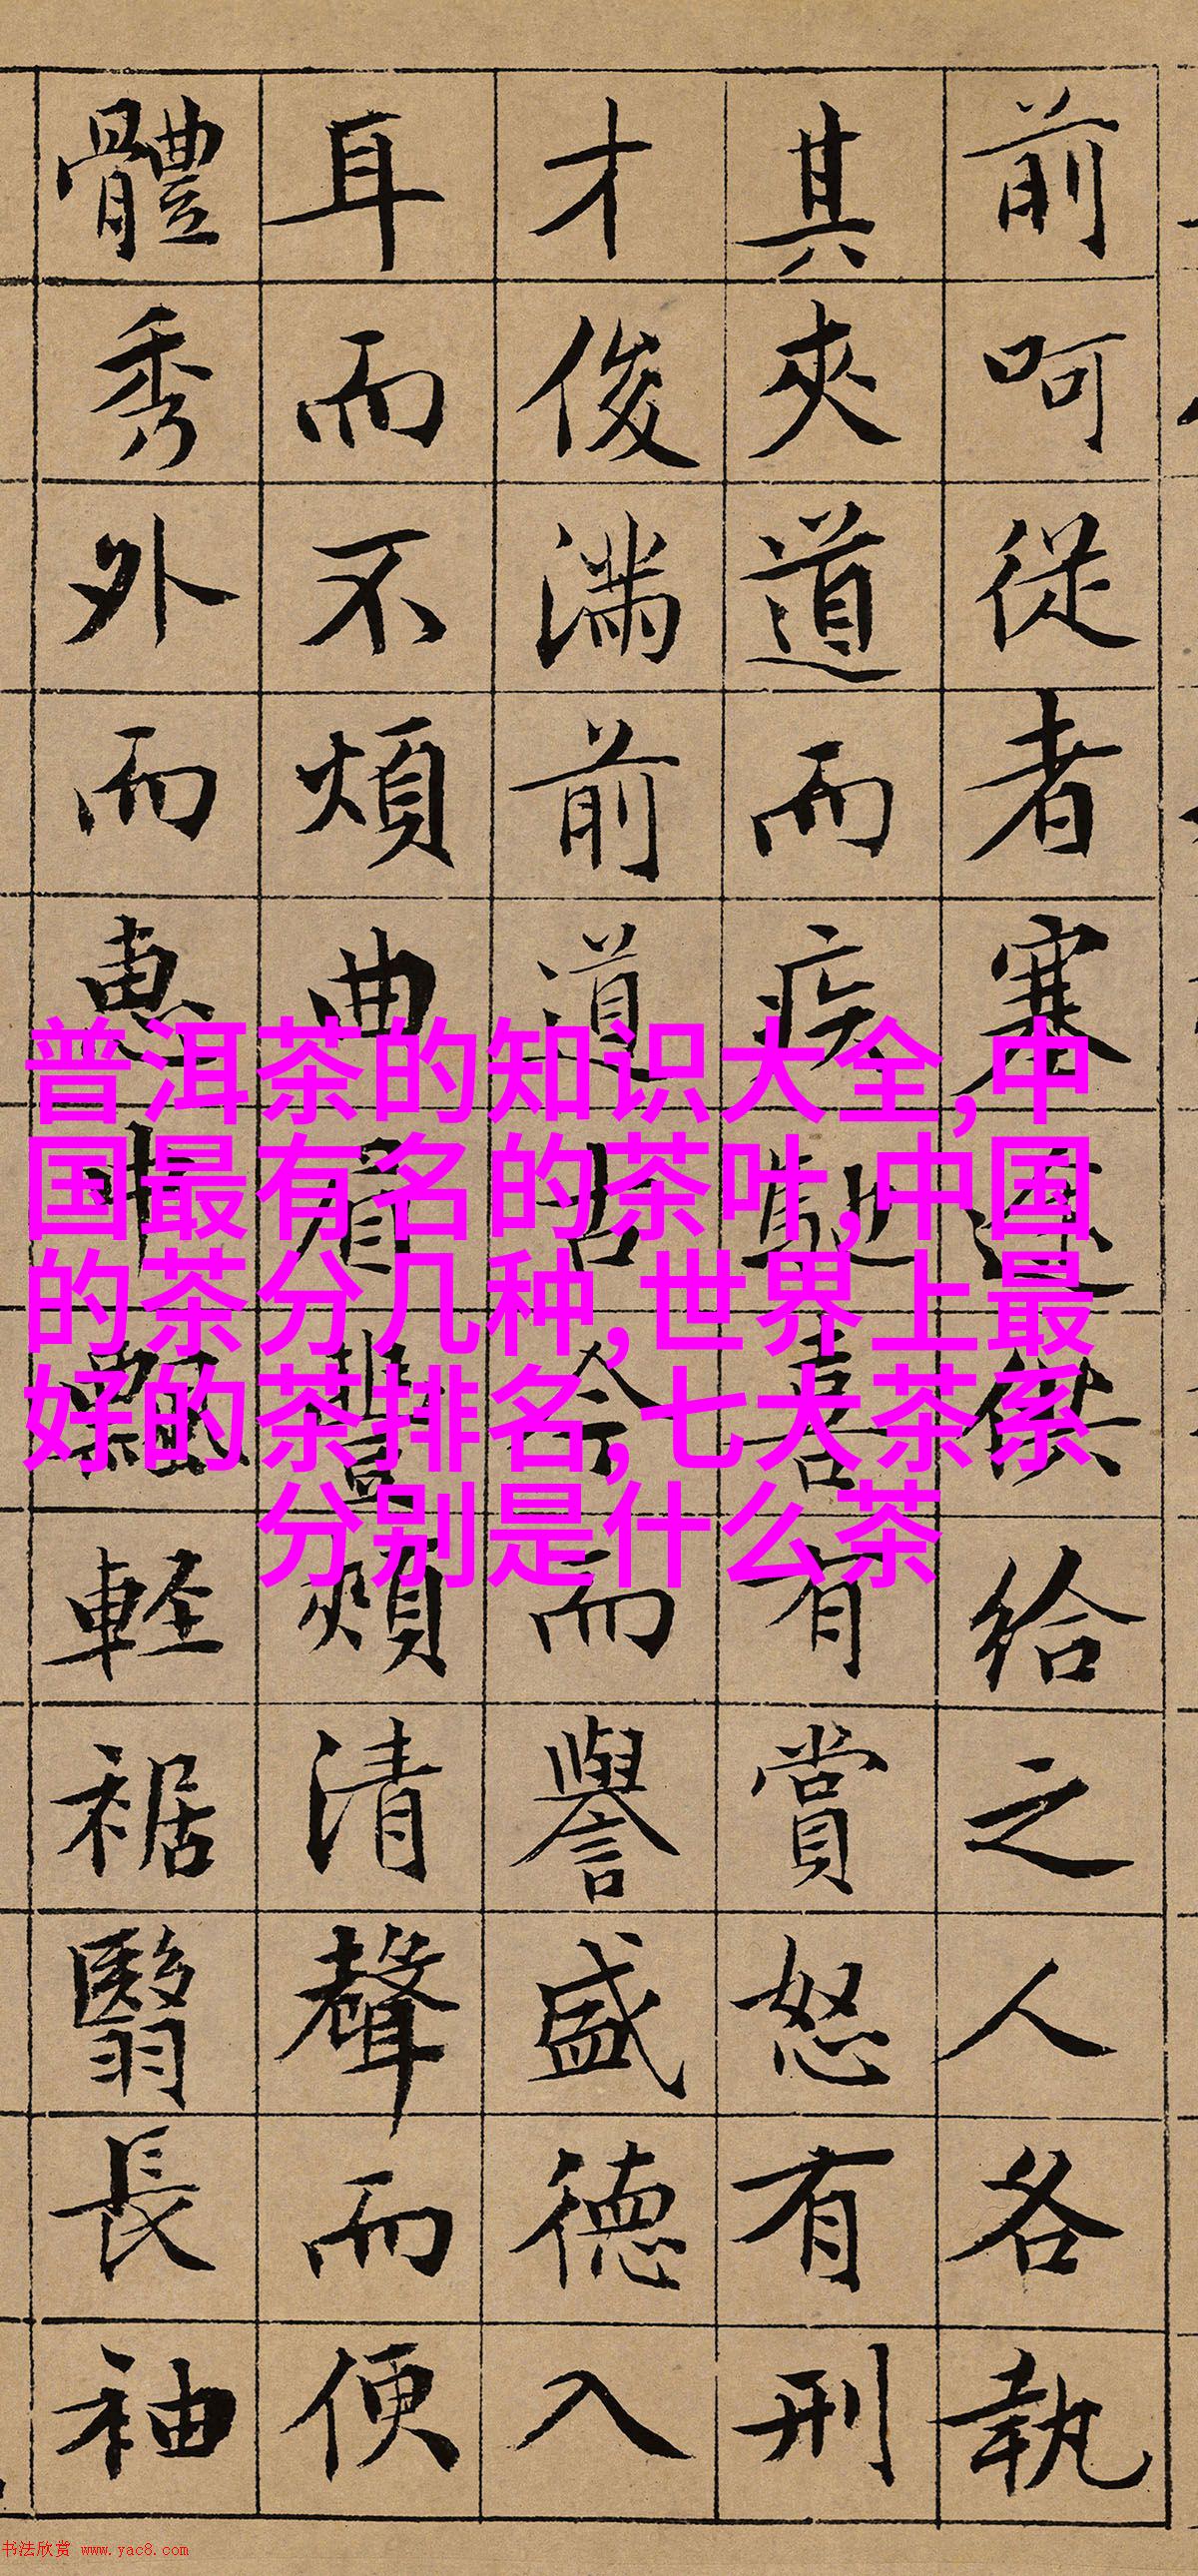 前呵從者塞途供給之人各執
其夾道而疾馳喜有賞怒有刑
才俊滿前道古今而譽盛德入
耳而不煩曲眉豐頰清聲而便
體秀外而惠中飄輕裾翳長袖
普洱茶的知识大全,中
国最有名的茶叶,中国
的茶分几种,世界上最
好的茶排名,七大茶系
分别是什么茶
书法欣赏 www.yac8.com